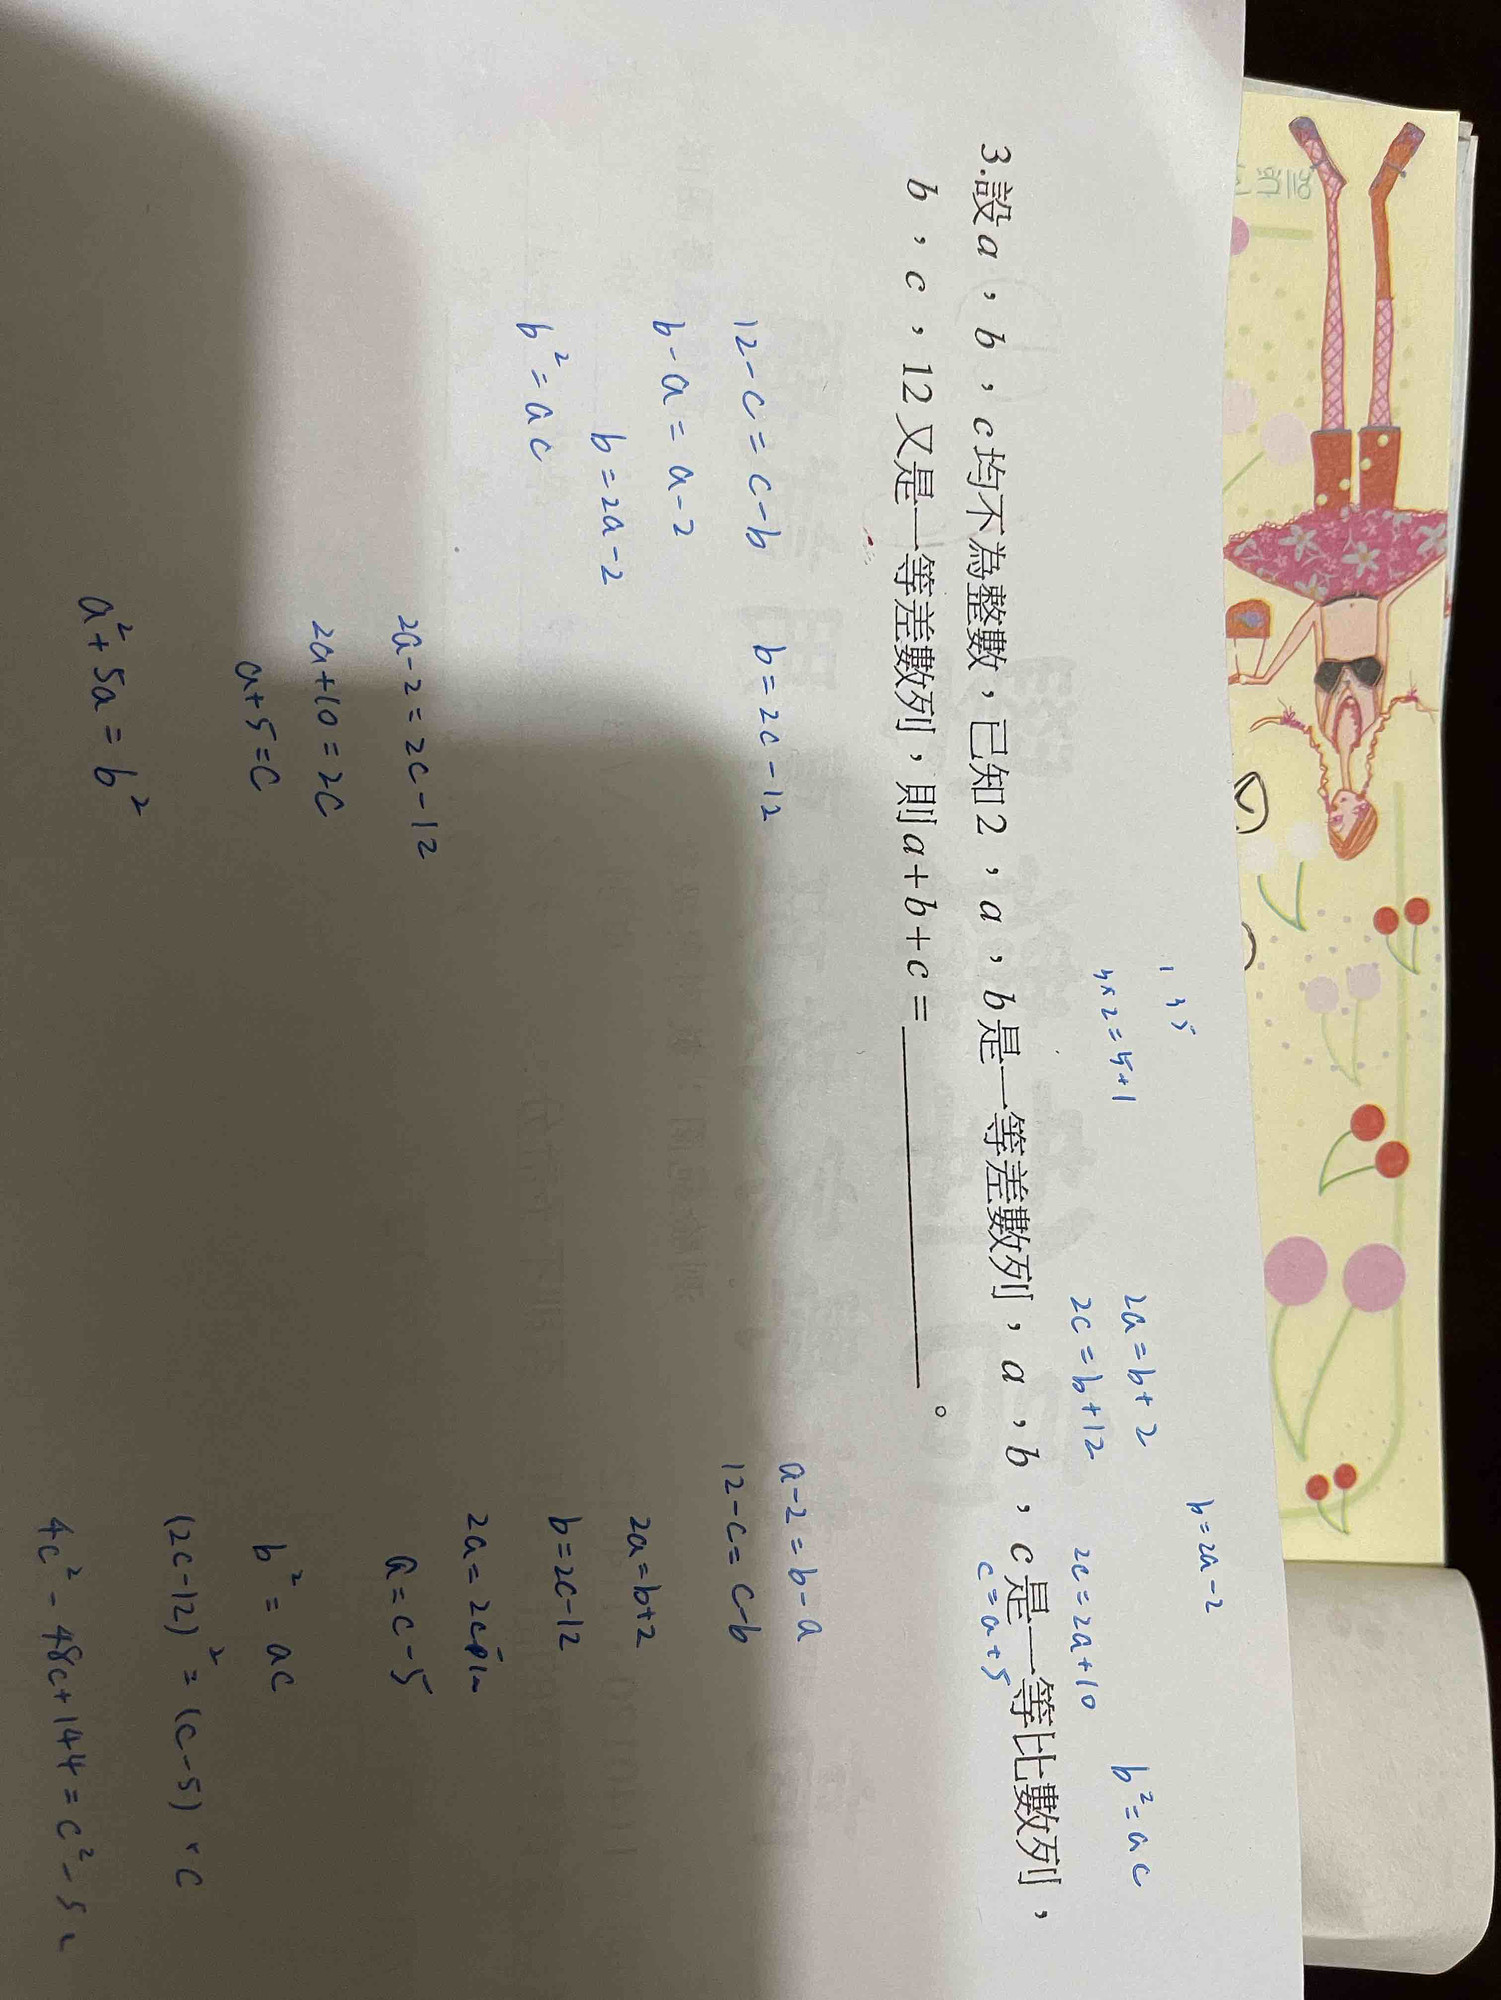 b=2a-2
1 3 5
3×2=5+1
2a=b+2
2c=b+12
2c=2a+10
c=a+5
b²=ac
3.設a,b,c均不為整數,已知2,a,b是一等差數列,a,b,c是一等比數列,
b,c,12又是一等差數列,則a+b+c=________。
12-c=c-b
b=2c-12
b-a=a-2
b=2a-2
b²=ac
2a-2=2c-12
2a+10=2c
a+5=c
a²+5a=b²
a-2=b-a
12-c=c-b
2a=b+2
b=2c-12
a=c-5
b²=ac
(2c-12)²=(c-5)×c
4c²-48c+144=c²-5c